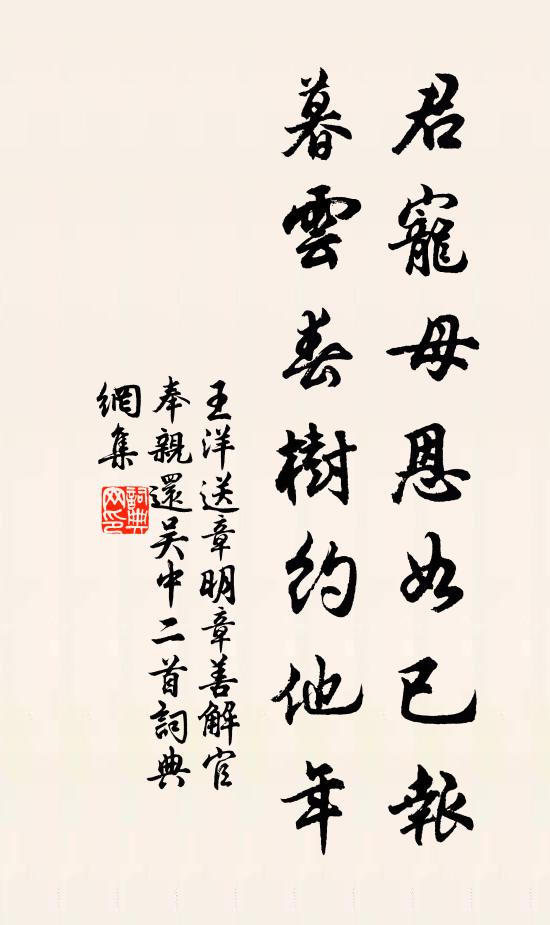 君寵母恩如已報
暮雲春樹約他年
王洋送章明章善解官
奉親還吳中二首詞典
網集
詞典網印